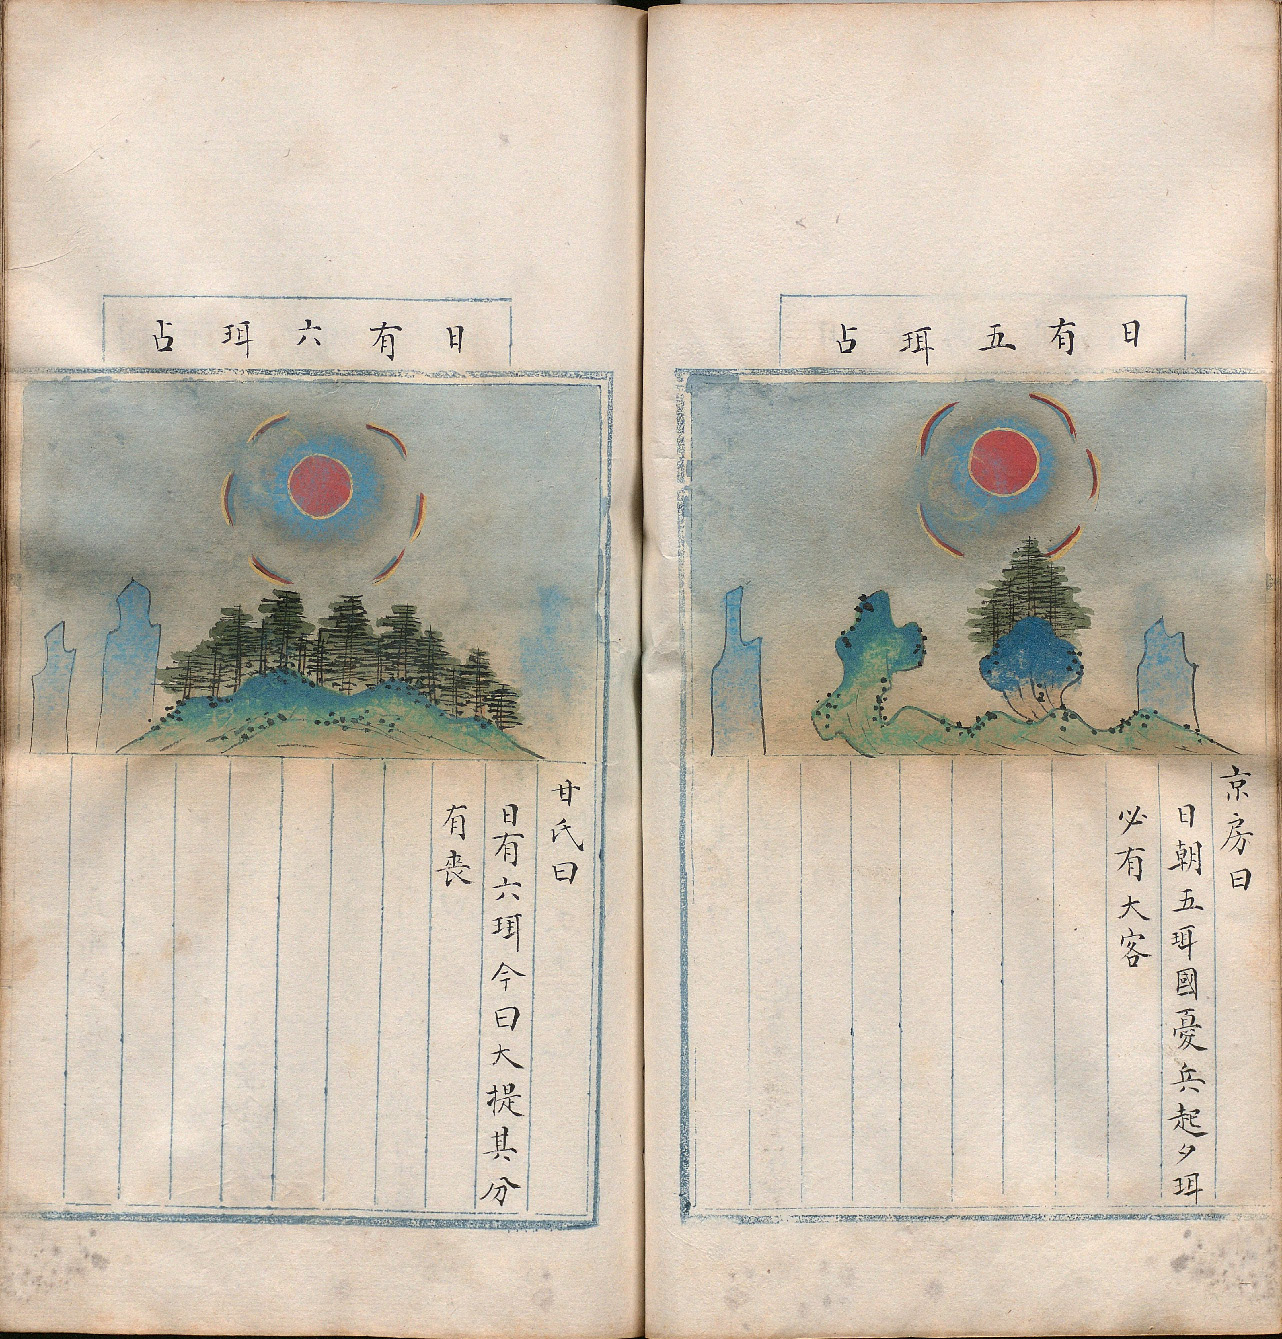 日有五珥占
京房曰
日朝五珥國憂兵起夕珥
必有大客
日有六珥占
甘氏曰
日有六珥今曰大提其分
有喪